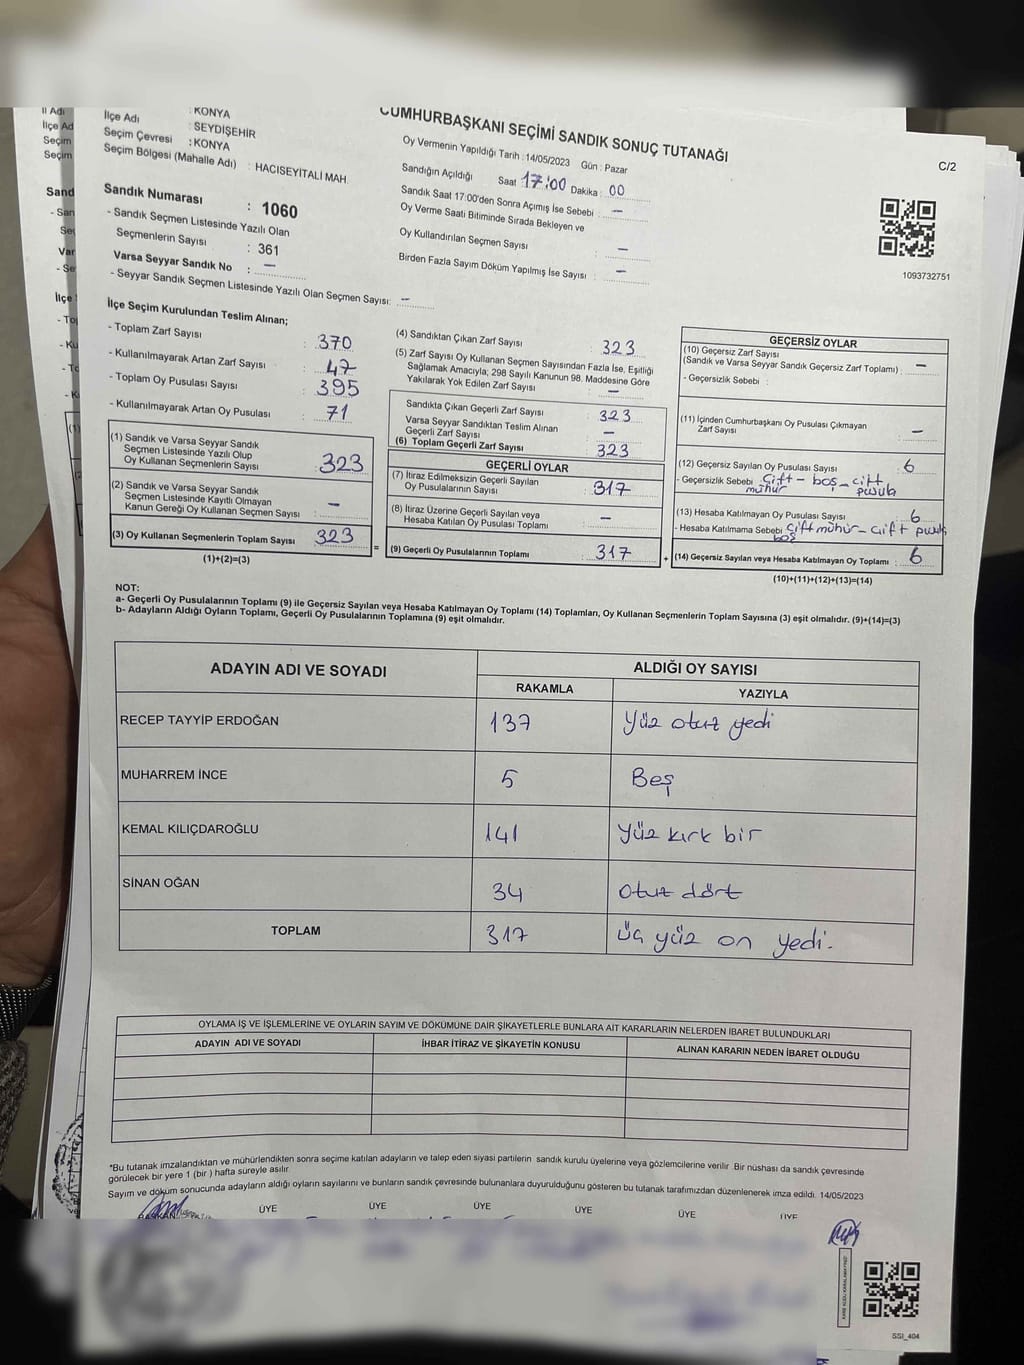 İl Adı
İlçe Ad
Seçim
Seçim
: KONYA
İlçe Adı : SEYDİŞEHİR
Seçim Çevresi : KONYA
Seçim Bölgesi (Mahalle Adı) : HACISEYİTALİ MAH.
CUMHURBAŞKANI SEÇİMİ SANDIK SONUÇ TUTANAĞI
C/2
Oy Vermenin Yapıldığı Tarih : 14/05/2023 Gün : Pazar
Sandığın Açıldığı Saat 17:00 Dakika : 00
Sandık Saat 17:00'den Sonra Açımış İse Sebebi : —
Oy Verme Saati Bitiminde Sırada Bekleyen ve
Oy Kullandırılan Seçmen Sayısı : —
Birden Fazla Sayım Döküm Yapılmış İse Sayısı : —
1093732751
Sandık Numarası : 1060
- Sandık Seçmen Listesinde Yazılı Olan
Seçmenlerin Sayısı : 361
Varsa Seyyar Sandık No : —
- Seyyar Sandık Seçmen Listesinde Yazılı Olan Seçmen Sayısı: —
İlçe Seçim Kurulundan Teslim Alınan;
- Toplam Zarf Sayısı : 370
- Kullanılmayarak Artan Zarf Sayısı : 47
- Toplam Oy Pusulası Sayısı : 395
- Kullanılmayarak Artan Oy Pusulası : 71
(1) Sandık ve Varsa Seyyar Sandık
Seçmen Listesinde Yazılı Olup
Oy Kullanan Seçmenlerin Sayısı : 323
(2) Sandık ve Varsa Seyyar Sandık
Seçmen Listesinde Kayıtlı Olmayan
Kanun Gereği Oy Kullanan Seçmen Sayısı : —
(3) Oy Kullanan Seçmenlerin Toplam Sayısı : 323
(1)+(2)=(3)
(4) Sandıktan Çıkan Zarf Sayısı : 323
(5) Zarf Sayısı Oy Kullanan Seçmen Sayısından Fazla İse, Eşitliği
Sağlamak Amacıyla; 298 Sayılı Kanunun 98. Maddesine Göre
Yakılarak Yok Edilen Zarf Sayısı : —
Sandıkta Çıkan Geçerli Zarf Sayısı : 323
Varsa Seyyar Sandıktan Teslim Alınan
Geçerli Zarf Sayısı : —
(6) Toplam Geçerli Zarf Sayısı : 323
GEÇERLİ OYLAR
(7) İtiraz Edilmeksizin Geçerli Sayılan
Oy Pusulalarının Sayısı : 317
(8) İtiraz Üzerine Geçerli Sayılan veya
Hesaba Katılan Oy Pusulası Toplamı : —
= (9) Geçerli Oy Pusulalarının Toplamı : 317
GEÇERSİZ OYLAR
(10) Geçersiz Zarf Sayısı
(Sandık ve Varsa Seyyar Sandık Geçersiz Zarf Toplamı) : —
- Geçersizlik Sebebi :
(11) İçinden Cumhurbaşkanı Oy Pusulası Çıkmayan
Zarf Sayısı : —
(12) Geçersiz Sayılan Oy Pusulası Sayısı : 6
- Geçersizlik Sebebi : Çift - boş - çift
mühür pusula
(13) Hesaba Katılmayan Oy Pusulası Sayısı : 6
- Hesaba Katılmama Sebebi : Çift mühür - çift pusula
boş
+ (14) Geçersiz Sayılan veya Hesaba Katılmayan Oy Toplamı : 6
(10)+(11)+(12)+(13)=(14)
NOT:
a- Geçerli Oy Pusulalarının Toplamı (9) ile Geçersiz Sayılan veya Hesaba Katılmayan Oy Toplamı (14) Toplamları, Oy Kullanan Seçmenlerin Toplam Sayısına (3) eşit olmalıdır. (9)+(14)=(3)
b- Adayların Aldığı Oyların Toplamı, Geçerli Oy Pusulalarının Toplamına (9) eşit olmalıdır.
ADAYIN ADI VE SOYADI
ALDIĞI OY SAYISI
RAKAMLA YAZIYLA
RECEP TAYYİP ERDOĞAN 137 Yüz otuz yedi
MUHARREM İNCE 5 Beş
KEMAL KILIÇDAROĞLU 141 Yüz kırk bir
SİNAN OĞAN 34 Otuz dört
TOPLAM 317 Üç yüz on yedi.
OYLAMA İŞ VE İŞLEMLERİNE VE OYLARIN SAYIM VE DÖKÜMÜNE DAİR ŞİKAYETLERLE BUNLARA AİT KARARLARIN NELERDEN İBARET BULUNDUKLARI
ADAYIN ADI VE SOYADI İHBAR İTİRAZ VE ŞİKAYETİN KONUSU ALINAN KARARIN NEDEN İBARET OLDUĞU
*Bu tutanak imzalandıktan ve mühürlendikten sonra seçime katılan adayların ve talep eden siyasi partilerin sandık kurulu üyelerine veya gözlemcilerine verilir. Bir nüshası da sandık çevresinde
görülecek bir yere 1 (bir) hafta süreyle asılır.
Sayım ve döküm sonucunda adayların aldığı oyların sayılarını ve bunların sandık çevresinde bulunanlara duyurulduğunu gösteren bu tutanak tarafımızdan düzenlenerek imza edildi. 14/05/2023
BAŞKAN ÜYE ÜYE ÜYE ÜYE ÜYE ÜYE
SSI_404